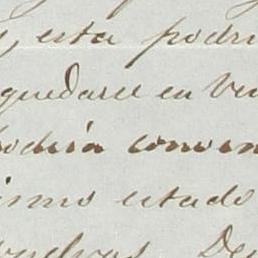 , esta podri
quedarse en Ve
podria conven
ismo estado
De